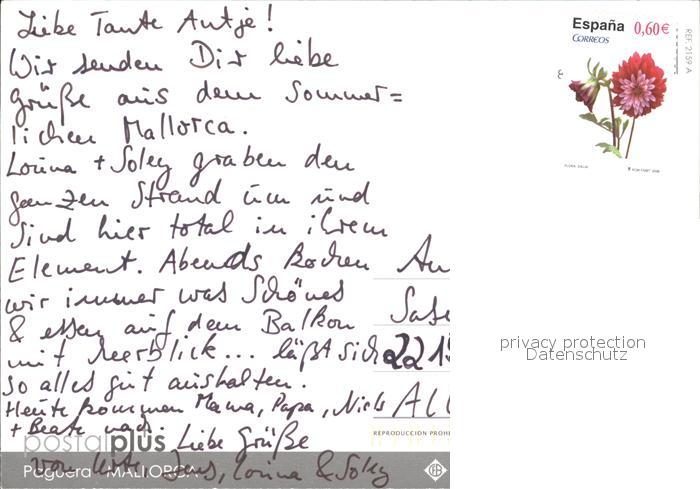 Liebe Tante Antje!
Wir senden Dir liebe
Grüße aus dem Sommer=
lichen Mallorca.
Lorina + Soley graben den
ganzen Strand um und
sind hier total in ihrem
Element. Abends kochen
wir immer was Schönes
& essen auf dem Balkon
mit Meerblick... läßt sich
so alles gut aushalten.
Heute kommen Mama, Papa, Niels
+ Beate nach. Liebe Grüße
von Jens, Lorina & Soley
An
221
All
España 0,60€
CORREOS
REF. 2159 A
FLORA DALIA
REPRODUCCION PROHI
privacy protection
Datenschutz
postalplus
Paguera - MALLORCA